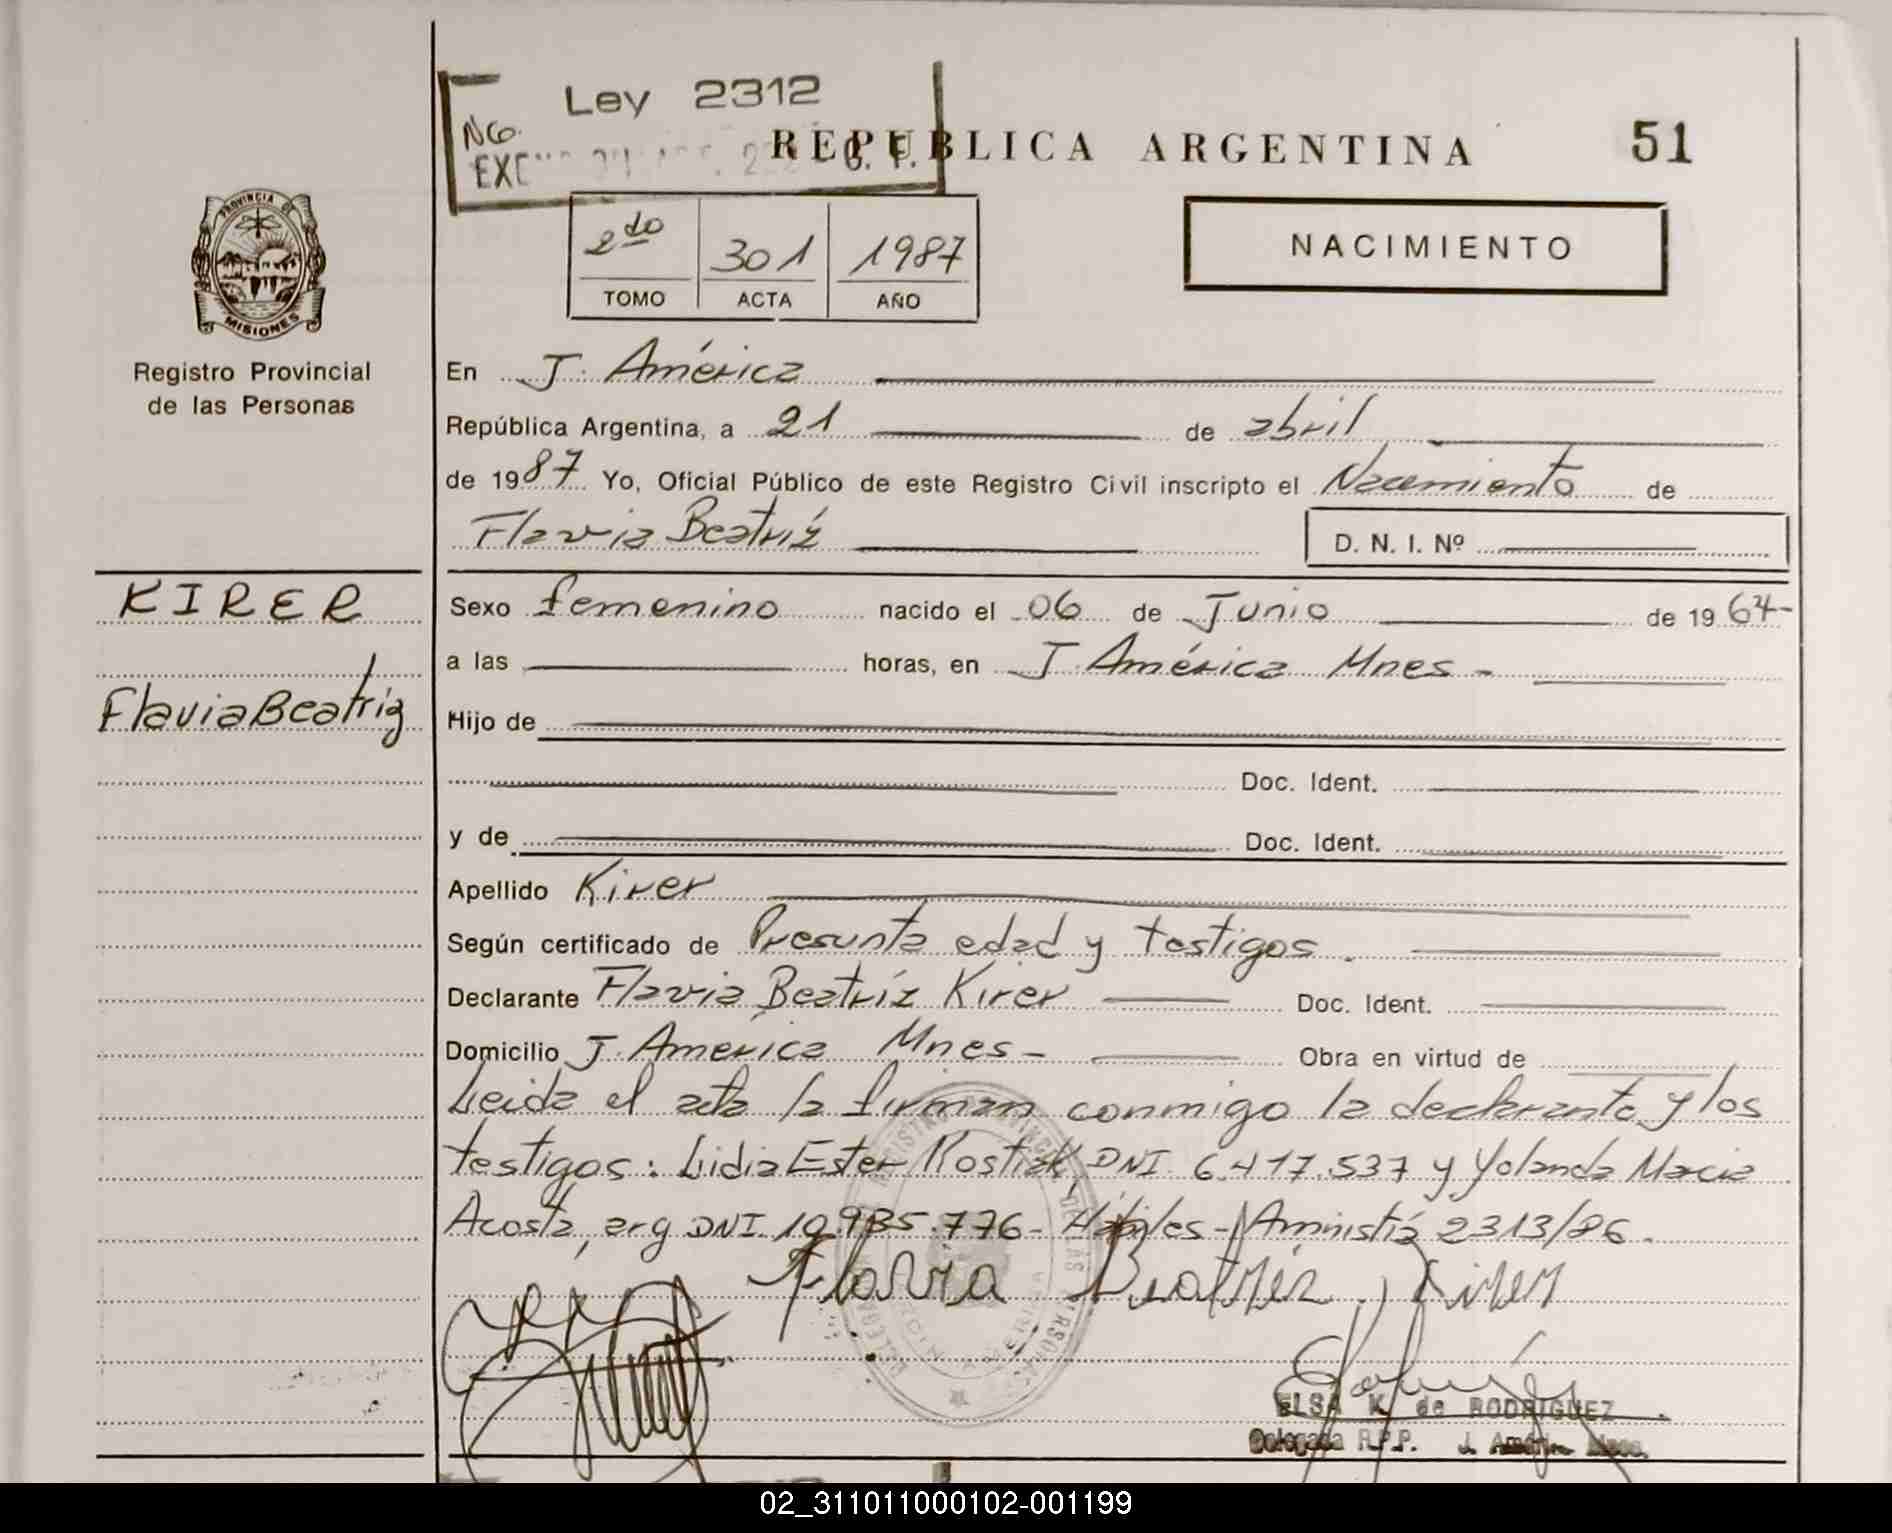 Ley 2312
REPUBLICA ARGENTINA
51
2do 301 1987
TOMO ACTA AÑO
NACIMIENTO
PROVINCIA DE
MISIONES
Registro Provincial
de las Personas
En J. América
República Argentina, a 21 de abril
de 1987 Yo, Oficial Público de este Registro Civil inscripto el Nacimiento de
Flavia Beatriz D. N. I. Nº
KIRER
Flavia Beatriz
Sexo femenino nacido el 06 de Junio de 1964-
a las horas, en J. América Mnes -
Hijo de
Doc. Ident.
y de Doc. Ident.
Apellido Kirer
Según certificado de Presunta edad y testigos.
Declarante Flavia Beatríz Kirer Doc. Ident.
Domicilio J. América Mnes - Obra en virtud de
Leida el acta la firman conmigo la declarante y los
testigos: Lidia Ester DNI 6.417.537 y Yolanda
Acosta, arg DNI. 10.985.776 - Hábiles - Amnistía 2313/86.
Flavia Beatriz Kirer
ELSA K. de RODRIGUEZ
Delegada R.P.P. J. América
02_311011000102-001199